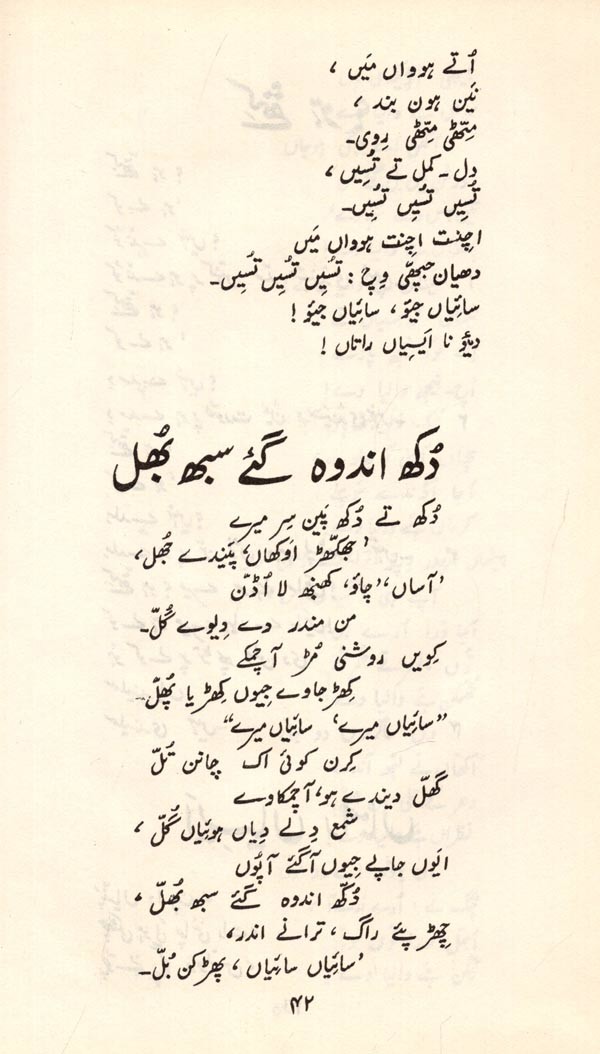 اُتے ہوواں مَیں ،
نَین ہون بند ،
مِٹھی مِٹھی رِوی۔
دِل ۔ کمل تے تُسِیں ،
تُسِیں تُسِیں تُسِیں۔
اچِنت اچِنت ہوواں مَیں
دھیان جھپّی وِچ : تُسِیں تُسِیں تُسِیں۔
سائیاں جیؤ ، سائیاں جیؤ !
دیؤ نا ایَسِیاں راتاں !
دُکھ اندوہ گئے سبھ بُھل
دُکھ تے دُکھ پَین سِر میرے
’جھکھّڑ اَوکھاں‘ پَیندے جُھل،
’آساں‘،’چاؤ‘، کھنبھ لا اُڈّن
من مندر دے دِیوے گُلّ۔
کِویں روشنی مُڑ آ چمکے
کِھڑ جاوے جیوں کِھڑیا پُھلّ۔
”سائیاں میرے‘ سائیاں میرے“
کِرن کوئی اک چانن تُلّ
گَھلّ دیندے ہو‘ آ چمکاوے
شمع دِلے دِیاں ہوئیاں گُلّ ،
ایَوں جاپے جیوں آ گئے آپُوں
دُکھّ اندوہ گئے سبھ بُھلّ ،
چِھڑ پئے راگ ، ترانے اندر،
’سائیاں سائیاں ، پھڑکن بُلّ۔
۴۲